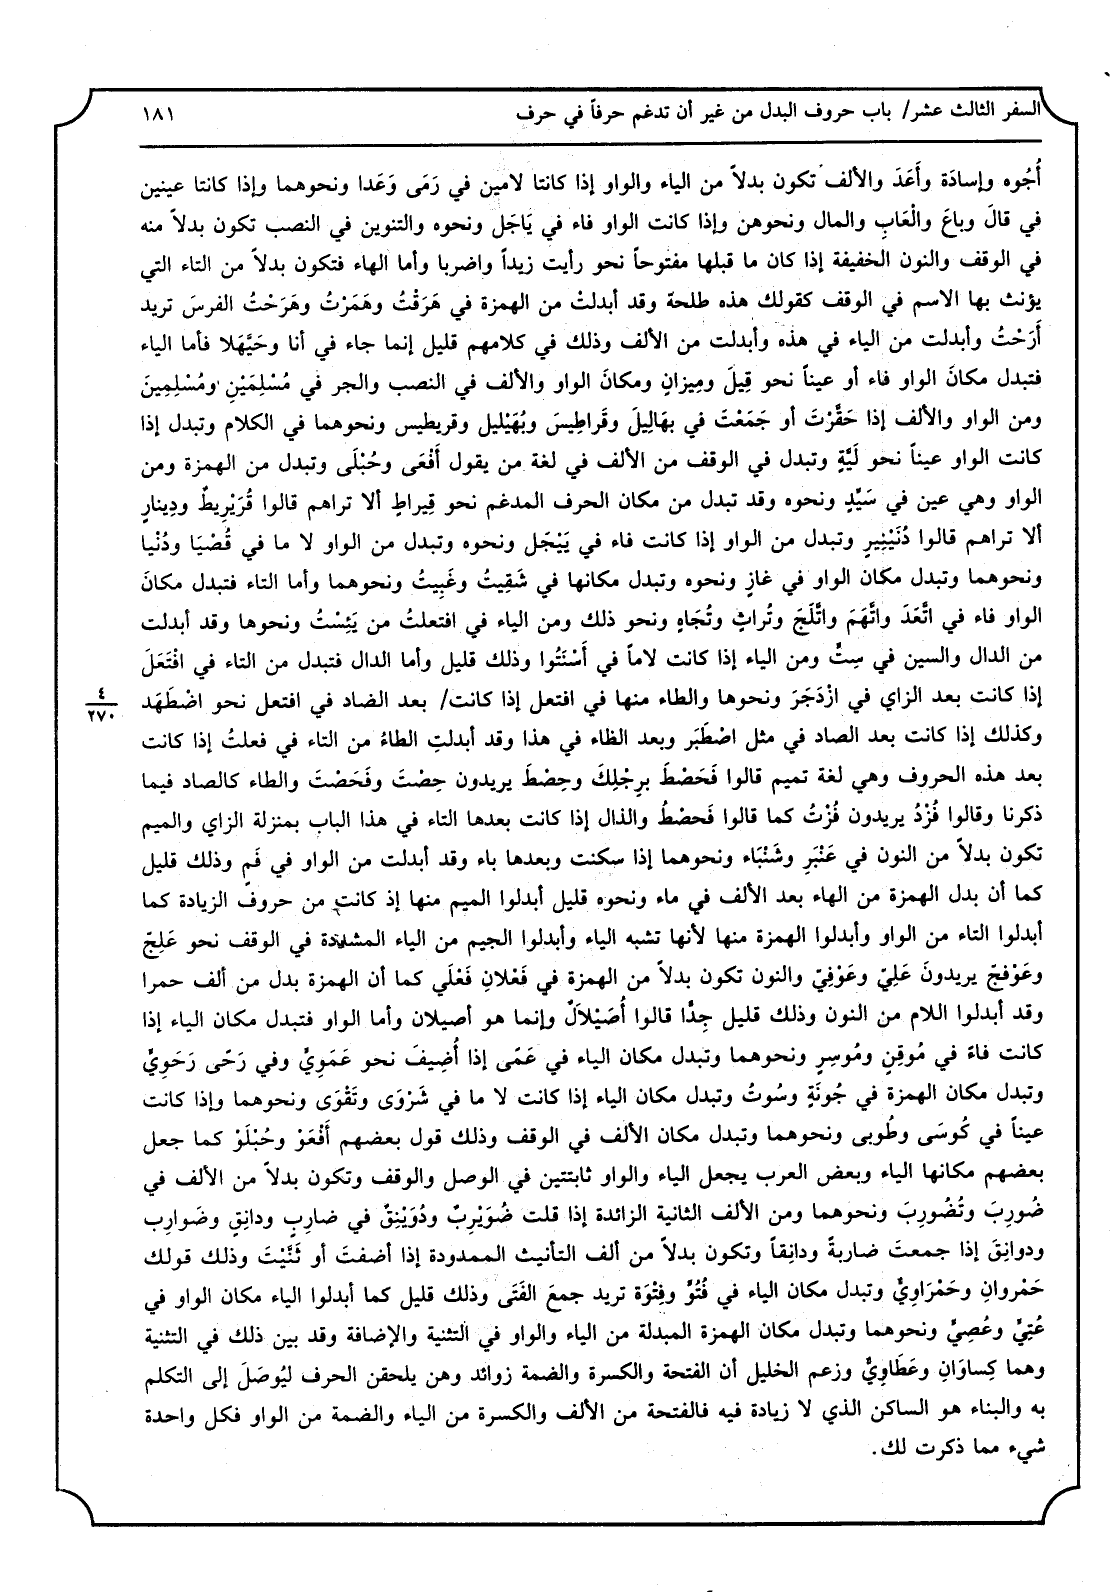 السفر الثالث عشر/ باب حروف البدل من غير أن تدغم حرفاً في حرف ١٨١
أُجُوه وإسادَة وأَعَدَ والألف تكون بدلاً من الياء والواو إذا كانتا لامين في رَمَى وَعَدا ونحوهما وإذا كانتا عينين
في قالَ وباعَ والْعَابِ والمال ونحوهن وإذا كانت الواو فاء في يَاجَل ونحوه والتنوين في النصب تكون بدلاً منه
في الوقف والنون الخفيفة إذا كان ما قبلها مفتوحاً نحو رأيت زيداً واضربا وأما الهاء فتكون بدلاً من التاء التي
يؤنث بها الاسم في الوقف كقولك هذه طلحة وقد أبدلتْ من الهمزة في هَرَقْتُ وهَمَرْتُ وهَرَحْتُ الفرسَ تريد
أَرَحْتُ وأبدلت من الياء في هذه وأبدلت من الألف وذلك في كلامهم قليل إنما جاء في أنا وحَيَّهَلا فأما الياء
فتبدل مكانَ الواو فاء أو عيناً نحو قِيلَ ومِيزانٍ ومكانَ الواو والألف في النصب والجر في مُسْلِمَيْنِ ومُسْلِمِينَ
ومن الواو والألف إذا حَقَّرْتَ أو جَمَعْتَ في بهَالِيلَ وقَراطِيسَ وبُهَيْليل وقريطيس ونحوهما في الكلام وتبدل إذا
كانت الواو عيناً نحو لَيَّةٍ وتبدل في الوقف من الألف في لغة من يقول أَفْعَى وحُبْلَى وتبدل من الهمزة ومن
الواو وهي عين في سَيِّدٍ ونحوه وقد تبدل من مكان الحرف المدغم نحو قِيراطٍ ألا تراهم قالوا قُرَيْرِيطٌ ودِينارٍ
ألا تراهم قالوا دُنَيْنِيرٍ وتبدل من الواو إذا كانت فاء في يَيْجَل ونحوه وتبدل من الواو لا ما في قُصْيَا ودُنْيا
ونحوهما وتبدل مكان الواو في غازٍ ونحوه وتبدل مكانها في شَقِيتُ وغَبِيتُ ونحوهما وأما التاء فتبدل مكانَ
الواو فاء في اتَّعَدَ واتَّهَمَ واتَّلَجَ وتُراثٍ وتُجَاهٍ ونحو ذلك ومن الياء في افتعلتُ من يَئِسْتُ ونحوها وقد أبدلت
من الدال والسين في سِتٍّ ومن الياء إذا كانت لاماً في أَسْنَتُوا وذلك قليل وأما الدال فتبدل من التاء في افْتَعَلَ
إذا كانت بعد الزاي في ازْدَجَرَ ونحوها والطاء منها في افتعل إذا كانت/ بعد الضاد في افتعل نحو اضْطَهَد
٤
٢٧٠
وكذلك إذا كانت بعد الصاد في مثل اصْطَبَر وبعد الظاء في هذا وقد أبدلتِ الطاءُ من التاء في فعلتُ إذا كانت
بعد هذه الحروف وهي لغة تميم قالوا فَحَصْطَ برِجْلِكَ وحِصْطَ يريدون حِصْتَ وفَحَصْتَ والطاء كالصاد فيما
ذكرنا وقالوا فُزْدُ يريدون فُزْتُ كما قالوا فَحصْطُ والذال إذا كانت بعدها التاء في هذا الباب بمنزلة الزاي والميم
تكون بدلاً من النون في عَنْبَرٍ وشَنْبَاء ونحوهما إذا سكنت وبعدها باء وقد أبدلت من الواو في فَمٍ وذلك قليل
كما أن بدل الهمزة من الهاء بعد الألف في ماء ونحوه قليل أبدلوا الميم منها إذ كانت من حروف الزيادة كما
أبدلوا التاء من الواو وأبدلوا الهمزة منها لأنها تشبه الياء وأبدلوا الجيم من الياء المشدّدة في الوقف نحو عَلِجّ
وعَوْفجّ يريدونَ عَلِيّ وعَوْفِيّ والنون تكون بدلاً من الهمزة في فَعْلانِ فَعْلَي كما أن الهمزة بدل من ألف حمرا
وقد أبدلوا اللام من النون وذلك قليل جِدًّا قالوا أُصَيْلالٌ وإنما هو أصيلان وأما الواو فتبدل مكان الياء إذا
كانت فاءً في مُوقِنٍ ومُوسِرٍ ونحوهما وتبدل مكان الياء في عَمًى إذا أُضِيفَ نحو عَمَوِيٍّ وفي رَحًى رَحَوِيٍّ
وتبدل مكان الهمزة في جُونَةٍ وسُوتُ وتبدل مكان الياء إذا كانت لا ما في شَرْوَى وتَقْوَى ونحوهما وإذا كانت
عيناً في كُوسَى وطُوبى ونحوهما وتبدل مكان الألف في الوقف وذلك قول بعضهم أَفْعَوْ وحُبْلَوْ كما جعل
بعضهم مكانها الياء وبعض العرب يجعل الياء والواو ثابتتين في الوصل والوقف وتكون بدلاً من الألف في
ضُورِبَ وتُضُورِبَ ونحوهما ومن الألف الثانية الزائدة إذا قلت ضُوَيْرِبٌ ودُوَيْنِقٌ في ضاربٍ ودانِقٍ وضَوارِب
ودوانِقَ إذا جمعتَ ضاربةً ودانِقاً وتكون بدلاً من ألف التأنيث الممدودة إذا أضفتَ أو ثَنَّيْتَ وذلك قولك
حَمْروانِ وحَمْرَاوِيٍّ وتبدل مكان الياء في فُتُوٍّ وفِتْوَة تريد جمعَ الفَتَى وذلك قليل كما أبدلوا الياء مكان الواو في
عُتِيٍّ وعُصِيٍّ ونحوهما وتبدل مكان الهمزة المبدلة من الياء والواو في التثنية والإضافة وقد بين ذلك في التثنية
وهما كِساوَانِ وعَطَاوِيٌّ وزعم الخليل أن الفتحة والكسرة والضمة زوائد وهن يلحقن الحرف ليُوصَلَ إلى التكلم
به والبناء هو الساكن الذي لا زيادة فيه فالفتحة من الألف والكسرة من الياء والضمة من الواو فكل واحدة
شيء مما ذكرت لك.